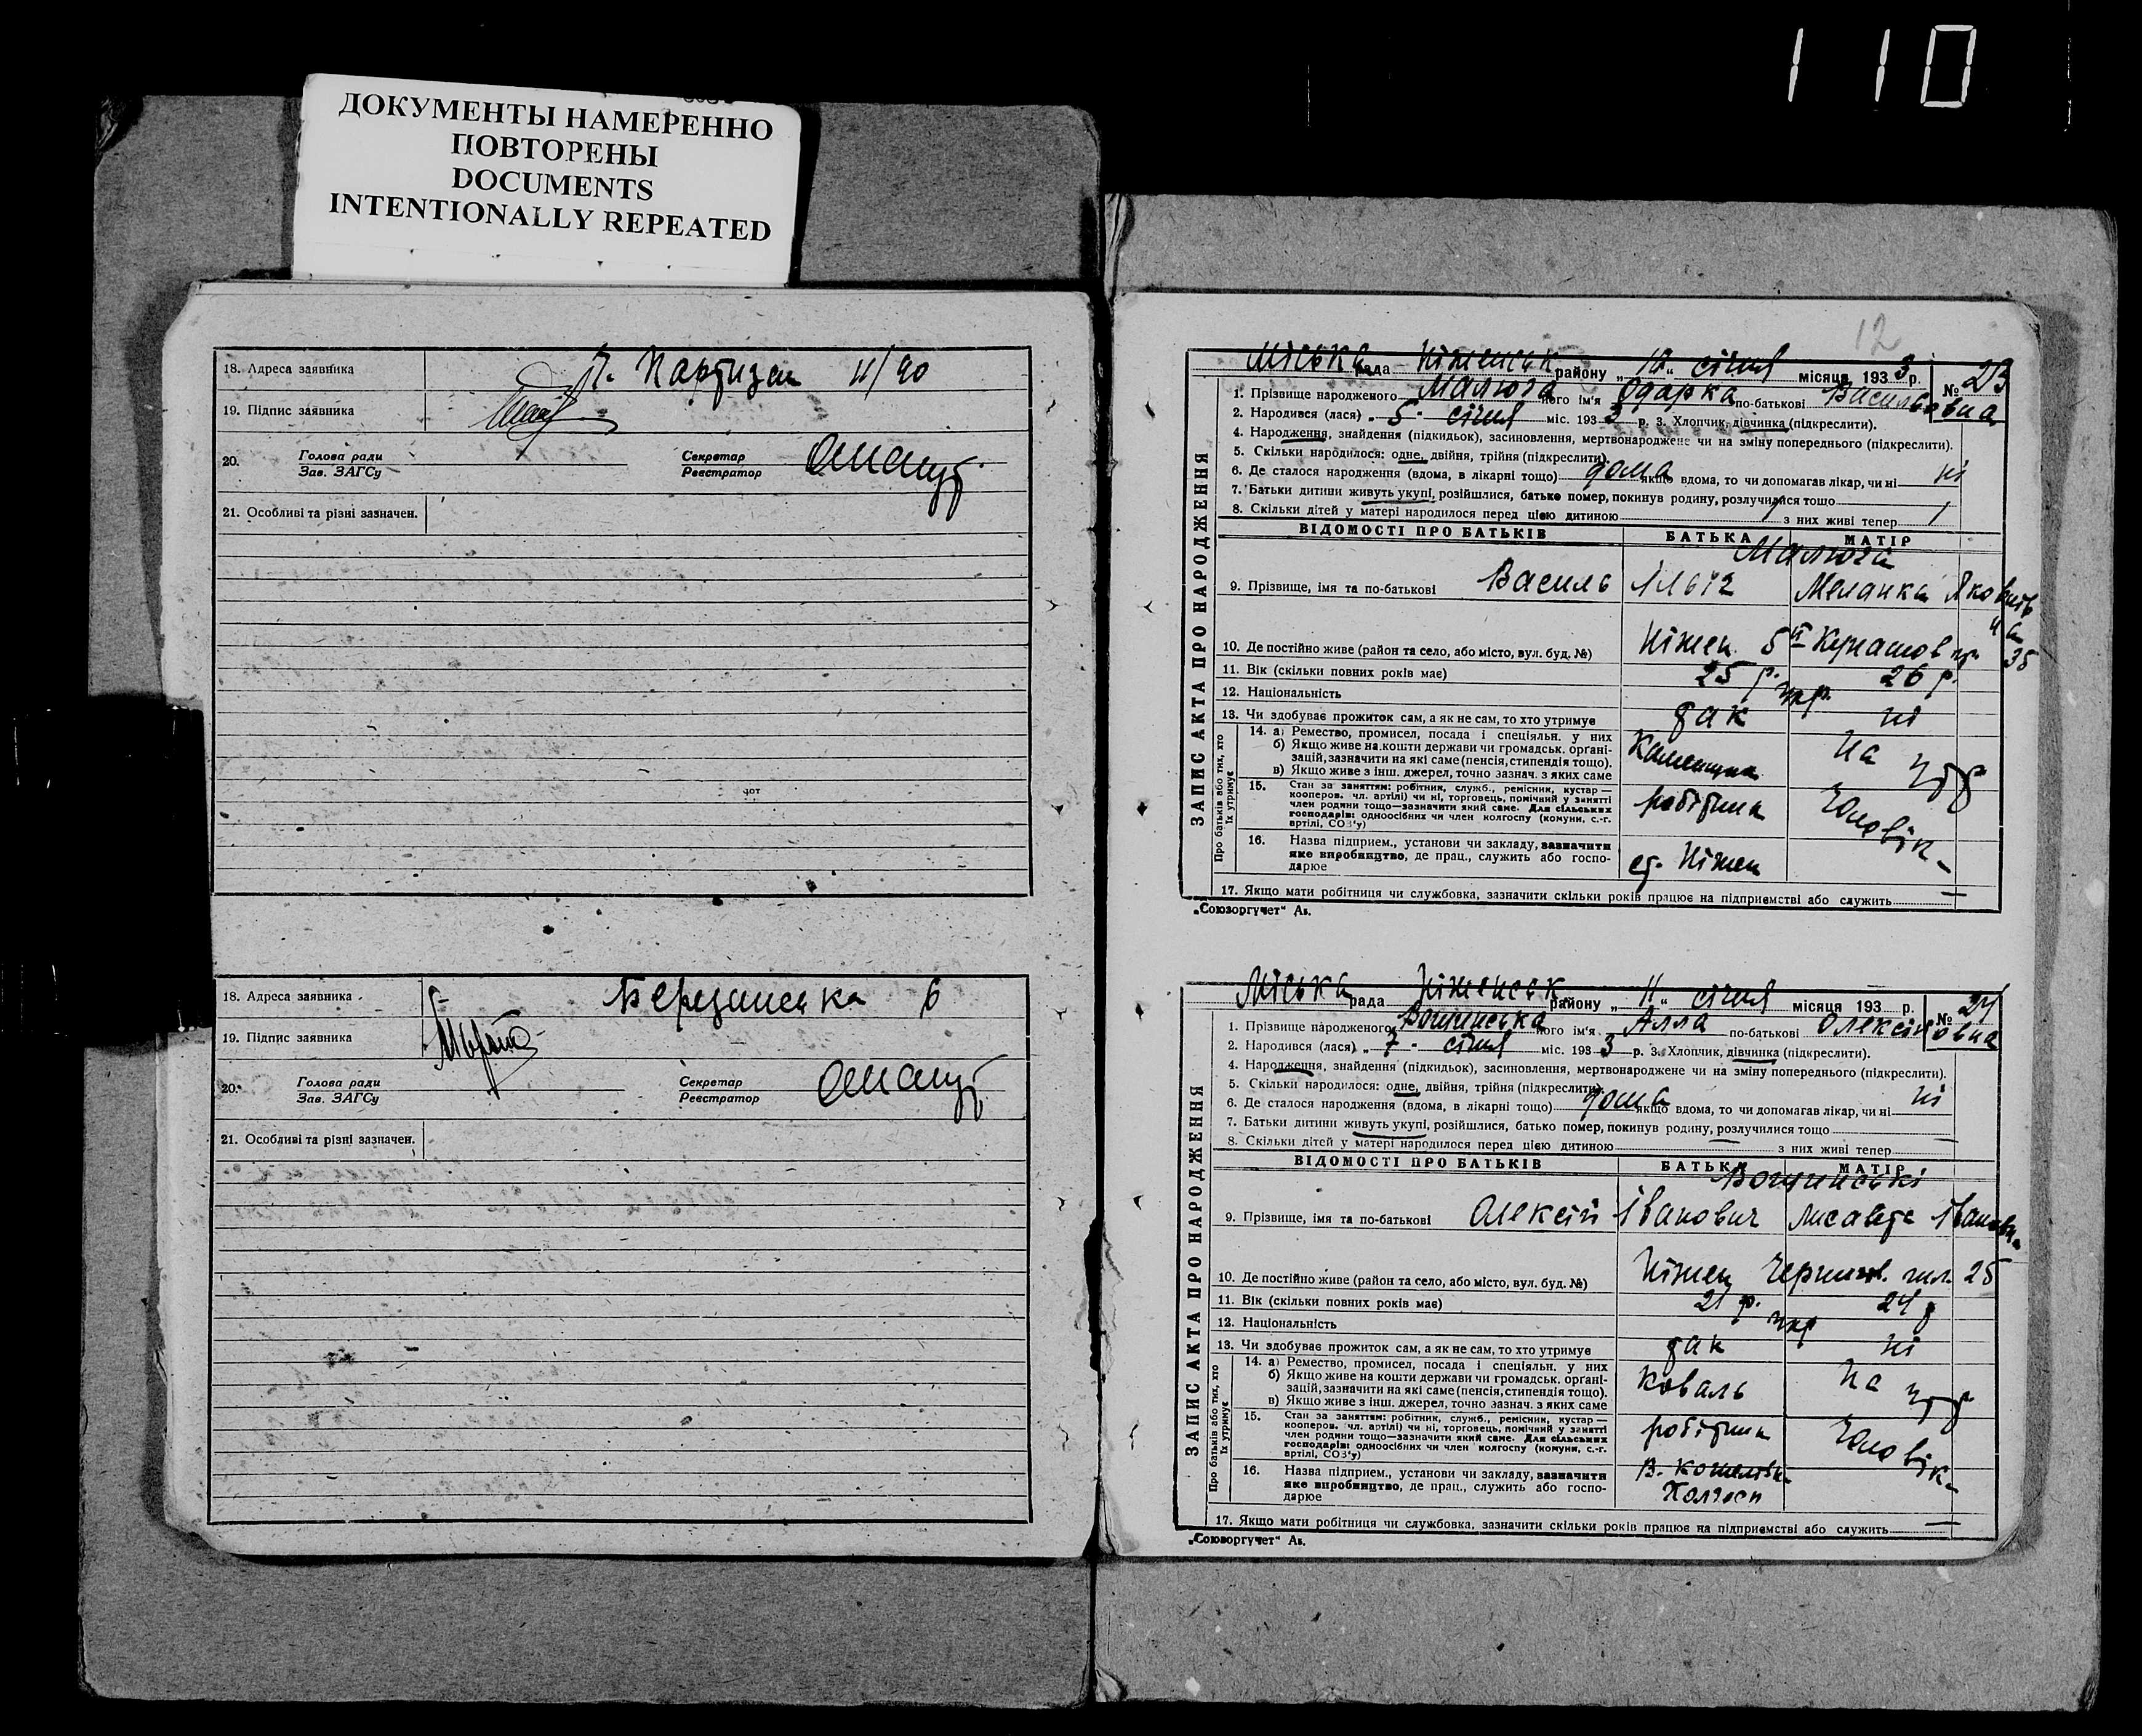 110
ДОКУМЕНТЫ НАМЕРЕННО
ПОВТОРЕНЫ
DOCUMENTS
INTENTIONALLY REPEATED
18. Адреса заявника Партизан 11/90
19. Підпис заявника
20. Голова ради Секретар
Зав. ЗАГСу Реєстратор
21. Особливі та різні зазначен.
18. Адреса заявника Березинська 6
19. Підпис заявника
20. Голова ради Секретар
Зав. ЗАГСу Реєстратор
21. Особливі та різні зазначен.
12
ЗАПИС АКТА ПРО НАРОДЖЕННЯ
Міська рада Ніженськ району „10“ січня місяця 1933 р. № 23
1. Прізвище народженого Малюга його ім'я Одарка по-батькові Васильовна
2. Народився (лася) „5“ січня міс. 1933 р. 3. Хлопчик, дівчинка (підкреслити).
4. Народження, знайдення (підкидьок), засиновлення, мертвонароджене чи на зміну попереднього (підкреслити).
5. Скільки народилося: одне, двійня, трійня (підкреслити).
6. Де сталося народження (вдома, в лікарні тощо) дома якщо вдома, то чи допомагав лікар, чи ні ні
7. Батьки дитини живуть укупі, розійшлися, батько помер, покинув родину, розлучилися тощо
8. Скільки дітей у матері народилося перед цією дитиною 1 з них живі тепер 1
ВІДОМОСТІ ПРО БАТЬКІВ БАТЬКА МАТІР
Малюга
9. Прізвище, імя та по-батькові Василь Ілліч Меланка Яковль
10. Де постійно живе (район та село, або місто, вул. буд. №) Ніжен
11. Вік (скільки повних років має) 25 р. 26 р.
12. Національність укр.
13. Чи здобуває прожиток сам, а як не сам, то хто утримує так ні
Про батьків або тих, хто їх утримує
14. а) Ремество, промисел, посада і спеціяльн. у них
б) Якщо живе на кошти держави чи громадськ. органі-
зацій, зазначити на які саме (пенсія, стипендія тощо).
в) Якщо живе з інш. джерел, точно зазнач. з яких саме
на утр
15. Стан за заняттям: робітник, служб., ремісник, кустар —
кооперов. чл. артілі) чи ні, торговець, помічний у занятті
член родини тощо—зазначити який саме. Для сільських
господарів: одноосібних чи член колгоспу (комуни, с.-г.
артілі, СОЗ'у)
робітник Чоловік
16. Назва підприєм., установи чи закладу, зазначити
яке виробництво, де прац., служить або госпо-
дарює
ст. Ніжен
17. Якщо мати робітниця чи службовка, зазначити скільки років працює на підприємстві або служить —
„Союзоргучет“ Ав.
ЗАПИС АКТА ПРО НАРОДЖЕННЯ
Міська рада Ніженськ району „11“ січня місяця 193 р. № 24
1. Прізвище народженого Вощинська його ім'я Алла по-батькові Олексіївна
2. Народився (лася) „7“ січня міс. 1933 р. 3. Хлопчик, дівчинка (підкреслити).
4. Народження, знайдення (підкидьок), засиновлення, мертвонароджене чи на зміну попереднього (підкреслити).
5. Скільки народилося: одне, двійня, трійня (підкреслити).
6. Де сталося народження (вдома, в лікарні тощо) дома якщо вдома, то чи допомагав лікар, чи ні ні
7. Батьки дитини живуть укупі, розійшлися, батько помер, покинув родину, розлучилися тощо
8. Скільки дітей у матері народилося перед цією дитиною — з них живі тепер —
ВІДОМОСТІ ПРО БАТЬКІВ БАТЬКА МАТІР
Вощинські
9. Прізвище, імя та по-батькові Олексій Іванович Лисавета Івановн
10. Де постійно живе (район та село, або місто, вул. буд. №) Ніжен 25
11. Вік (скільки повних років має) 21 р. 24 р
12. Національність укр
13. Чи здобуває прожиток сам, а як не сам, то хто утримує так ні
Про батьків або тих, хто їх утримує
14. а) Ремество, промисел, посада і спеціяльн. у них
б) Якщо живе на кошти держави чи громадськ. органі-
зацій, зазначити на які саме (пенсія, стипендія тощо).
в) Якщо живе з інш. джерел, точно зазнач. з яких саме
коваль на утр
15. Стан за заняттям: робітник, служб., ремісник, кустар —
кооперов. чл. артілі) чи ні, торговець, помічний у занятті
член родини тощо—зазначити який саме. Для сільських
господарів: одноосібних чи член колгоспу (комуни, с.-г.
артілі, СОЗ'у)
робітник Чоловік
16. Назва підприєм., установи чи закладу, зазначити
яке виробництво, де прац., служить або госпо-
дарює
Колгосп
17. Якщо мати робітниця чи службовка, зазначити скільки років працює на підприємстві або служить —
„Союзоргучет“ Ав.